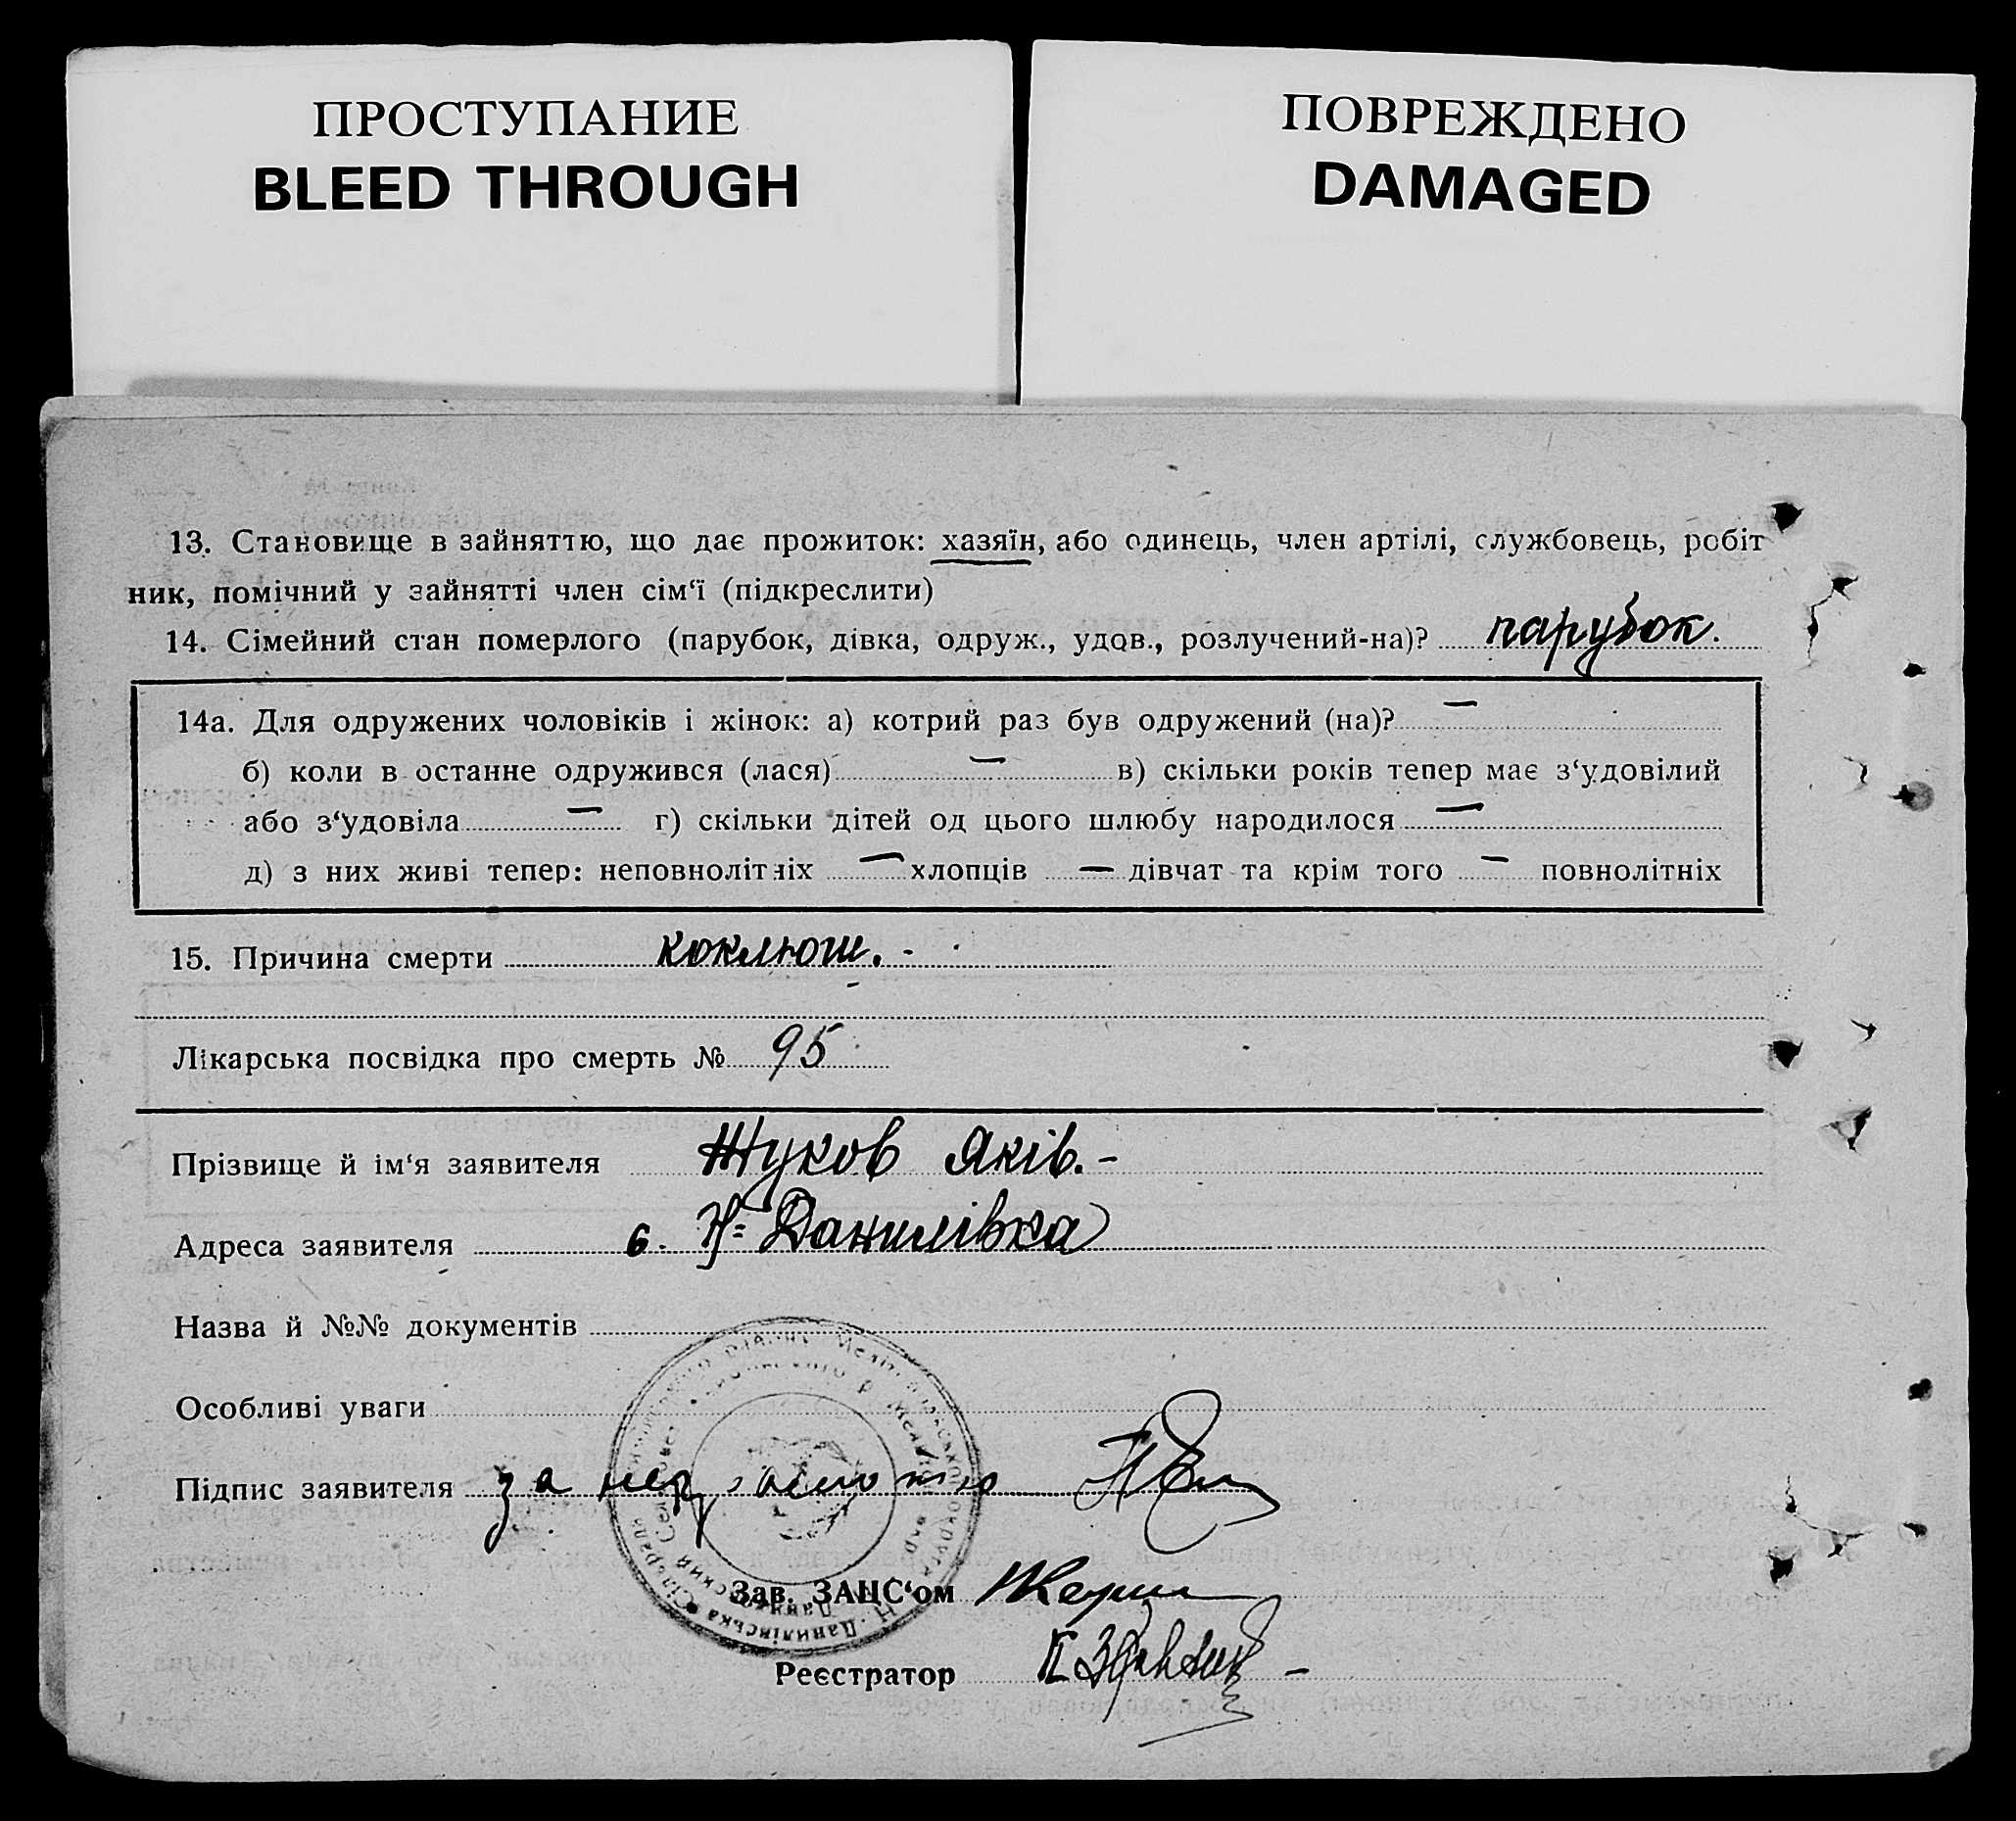 ПРОСТУПАНИЕ
BLEED THROUGH
ПОВРЕЖДЕНО
DAMAGED
13. Становище в зайняттю, що дає прожиток: хазяїн, або одинець, член артілі, службовець, робіт
ник, помічний у зайнятті член сім‘ї (підкреслити)
14. Сімейний стан померлого (парубок, дівка, одруж., удов., розлучений-на)? парубок.
14а. Для одружених чоловіків і жінок: а) котрий раз був одружений (на)? —
б) коли в останне одружився (лася) — в) скільки років тепер має з‘удовілий
або з‘удовіла — г) скільки дітей од цього шлюбу народилося —
д) з них живі тепер: неповнолітніх — хлопців — дівчат та крім того — повнолітніх
15. Причина смерти коклюш. -
Лікарська посвідка про смерть № 95
Прізвище й ім‘я заявителя Жуков Яків. -
Адреса заявителя с. Н= Данилівка
Назва й №№ документів
Особливі уваги
Підпис заявителя за
Зав. ЗАЦС‘ом
Реєстратор
Н. Данилівська Сільрада